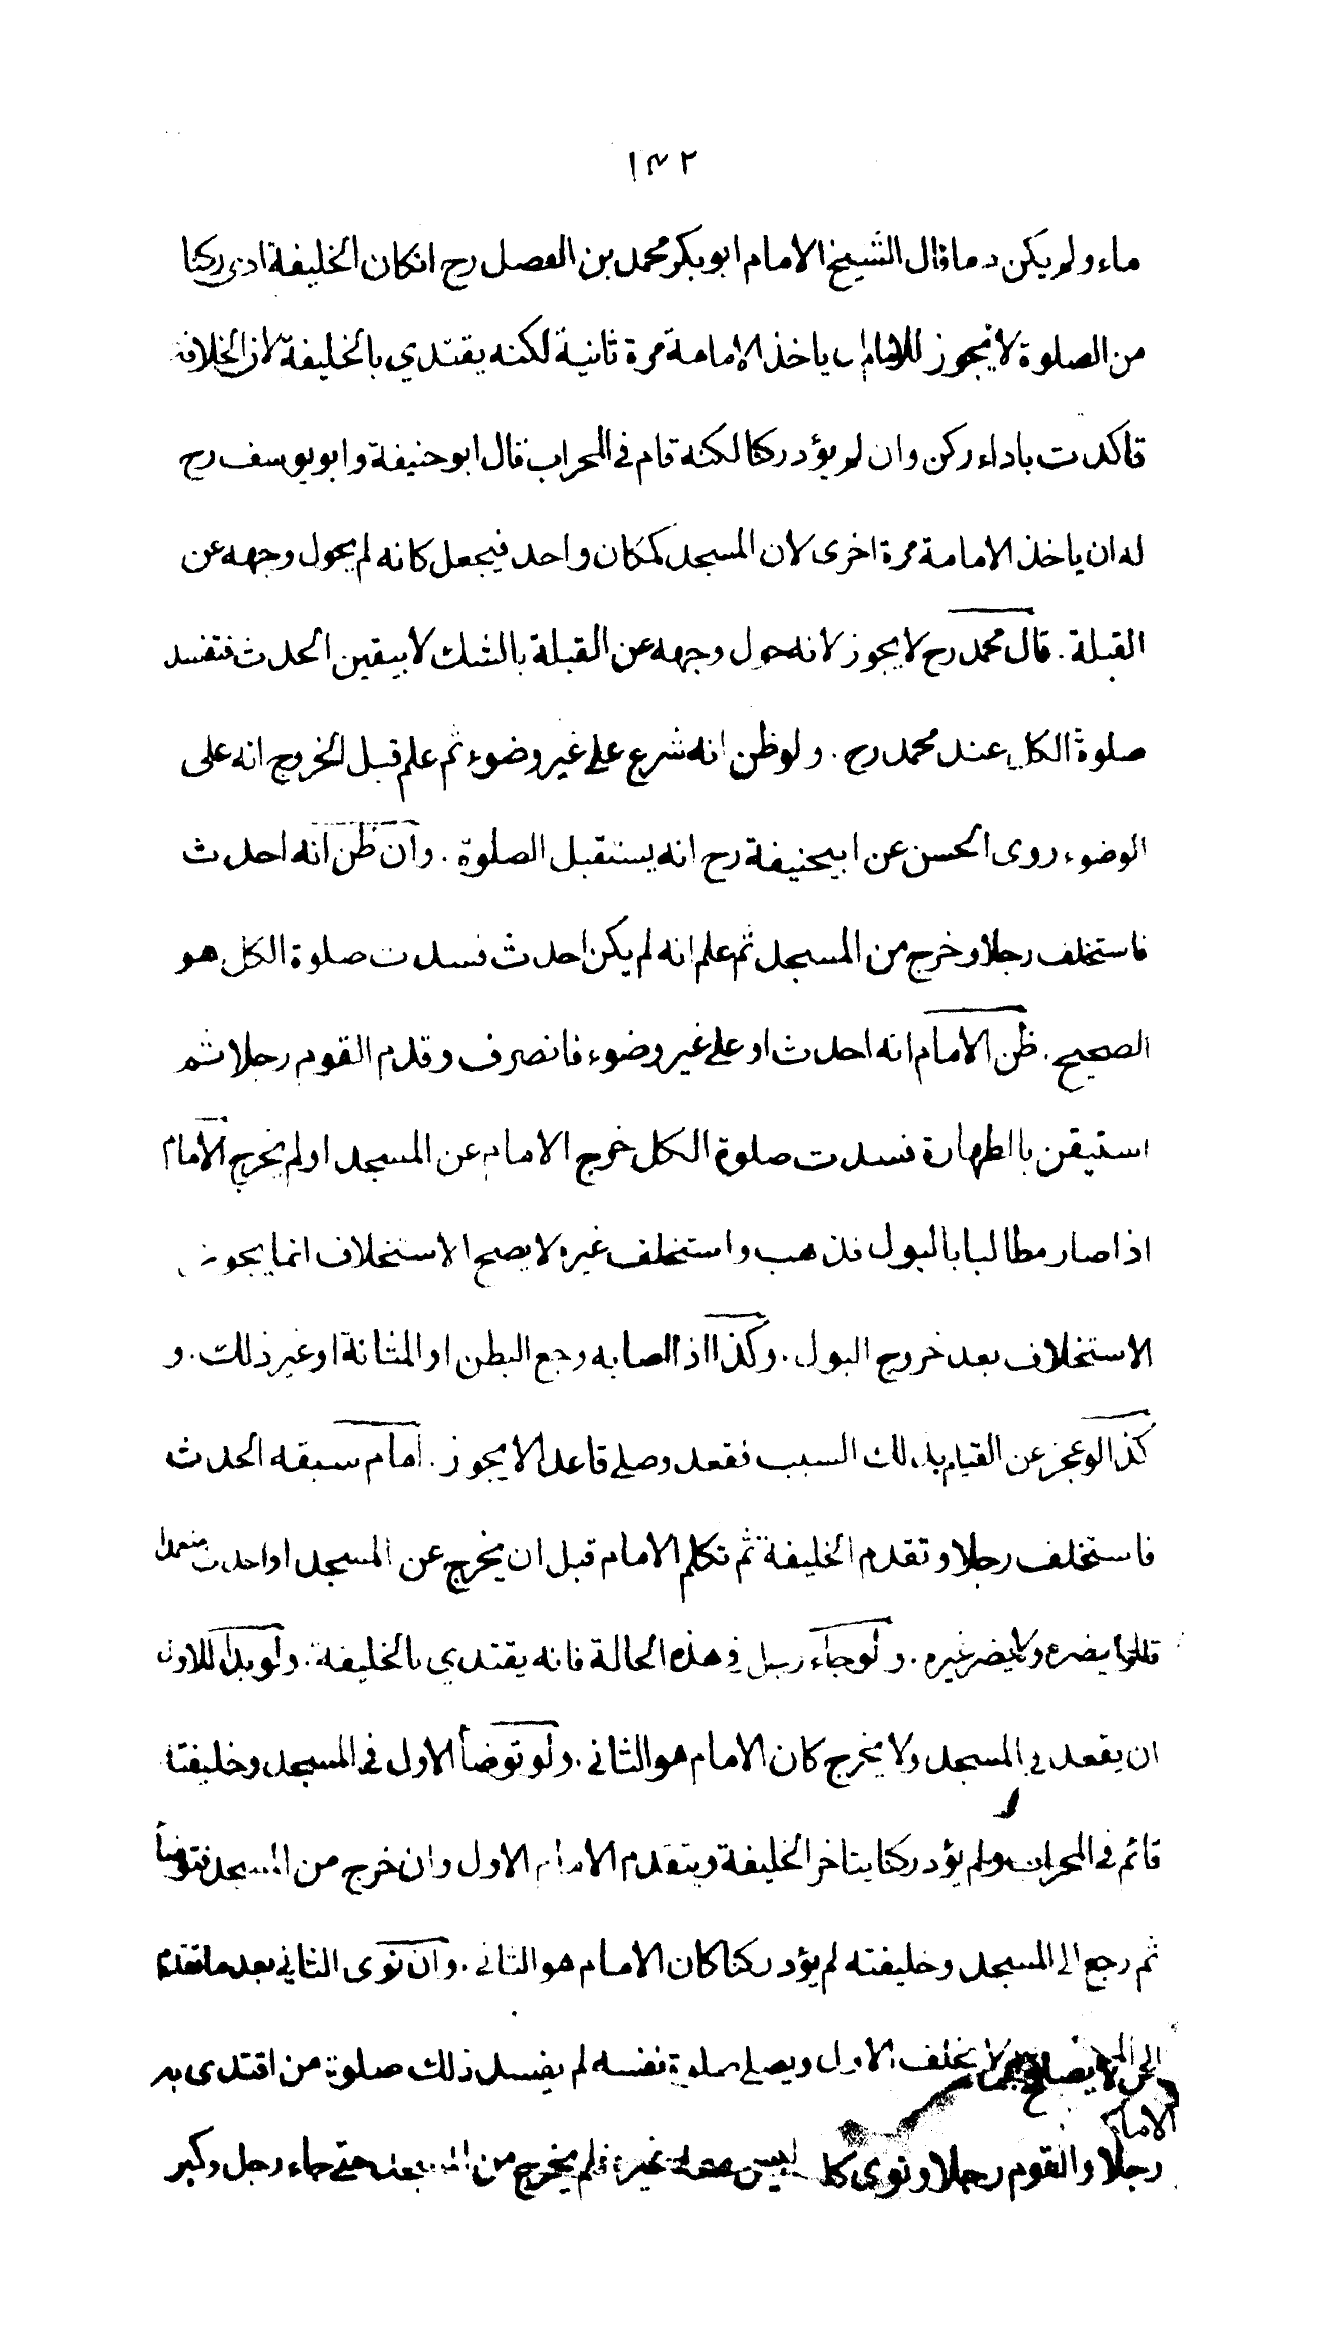 ١٣٢
ماء ولم يكن دما قال الشيخ الامام ابو بكر محمد بن الفصل رح انكان الخليفة ادى ركنا
من الصلوة لا يجوز للامام ان ياخذ الامامة مرة ثانية لكنه يقتدي بالخليفة لان الخلافة
تاكدت باداء ركن وان لم يؤد ركنا لكنه قام في المحراب قال ابو حنيفة وابو يوسف رح
له ان ياخذ الامامة مرة اخرى لان المسجد كمكان واحد فيجعل كانه لم يحول وجهه عن
القبلة . قال محمد رح لا يجوز لانه حول وجهه عن القبلة بالشك لا بيقين الحدث فتفسد
صلوة الكل عند محمد رح . ولو ظن انه شرع على غير وضوء ثم علم قبل الخروج انه على
الوضوء روى الحسن عن ابيحنيفة رح انه يستقبل الصلوة . وان ظن انه احدث
فاستخلف رجلا وخرج من المسجد ثم علم انه لم يكن احدث فسدت صلوة الكل هو
الصحيح . ظن الامام انه احدث او على غير وضوء فانصرف وقدم القوم رجلا ثم
استيقن بالطهارة فسدت صلوة الكل خرج الامام عن المسجد او لم يخرج الامام
اذا صار مطالبا بالبول فذهب واستخلف غيره لا يصح الاستخلاف انما يجوز
الاستخلاف بعد خروج البول . وكذا اذا اصابه وجع البطن او المثانة او غير ذلك . و
كذا لو عجز عن القيام بذلك السبب فقعد وصلى قاعدا لا يجوز . امام سبقه الحدث
فاستخلف رجلا وتقدم الخليفة ثم تكلم الامام قبل ان يخرج عن المسجد او احدث متعمدا
قالوا يضره ولا يضر غيره . ولو جاء رجل في هذه الحالة فانه يقتدي بالخليفة . ولو بدا للاول
ان يقعد في المسجد ولا يخرج كان الامام هو الثاني . ولو توضأ الاول في المسجد وخليفته
قائم في المحراب ولم يؤد ركنا يتاخر الخليفة ويتقدم الامام الاول وان خرج من المسجد فتوضأ
ثم رجع الى المسجد وخليفته لم يؤد ركنا كان الامام هو الثاني . وان نوى الثاني بعد ما تقدم
الى لا يخلف الاول ويصلي صلوة نفسه لم يفسد ذلك صلوة من اقتدى به
الامام
رجلا والقوم رجلا ونوى كل ليس معه غيره فلم يخرج من حتى جاء رجل وكبر